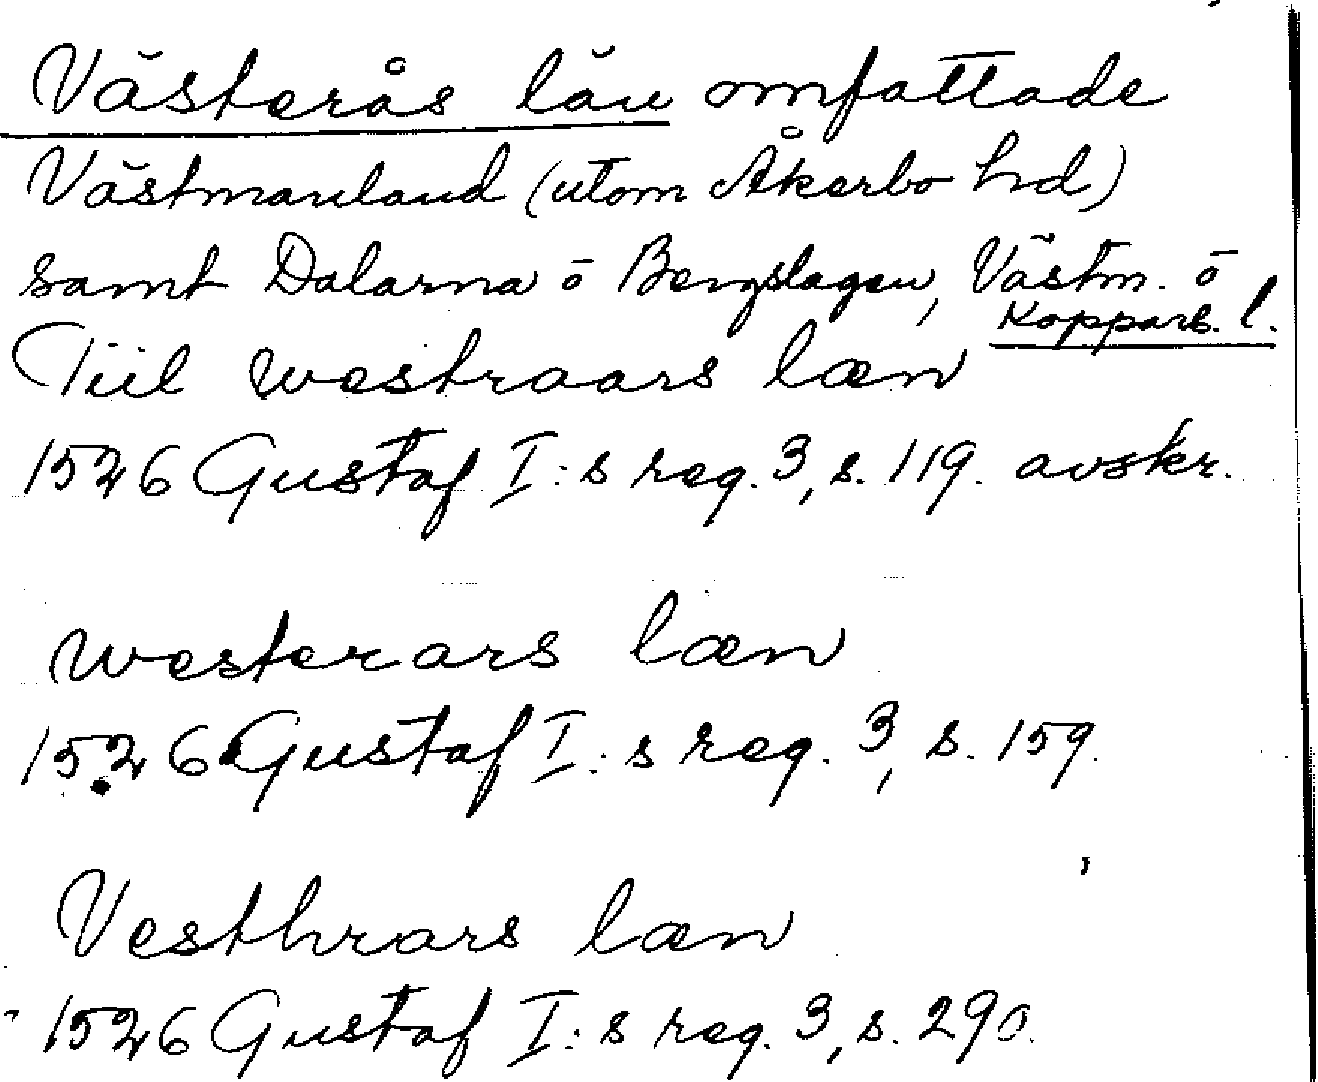 Västerås län omfattade
Västmanland (utom Åkerbo hd)
samt Dalarna o Bergslagen, Västm. o
Kopparb. l.
Tiil westraars læn
1526 Gustaf I:s reg. 3, s. 119. avskr.
westerars læn
1526 Gustaf I:s reg. 3, s. 159.
Vesthrars læn
1526 Gustaf I:s reg. 3, s. 290.